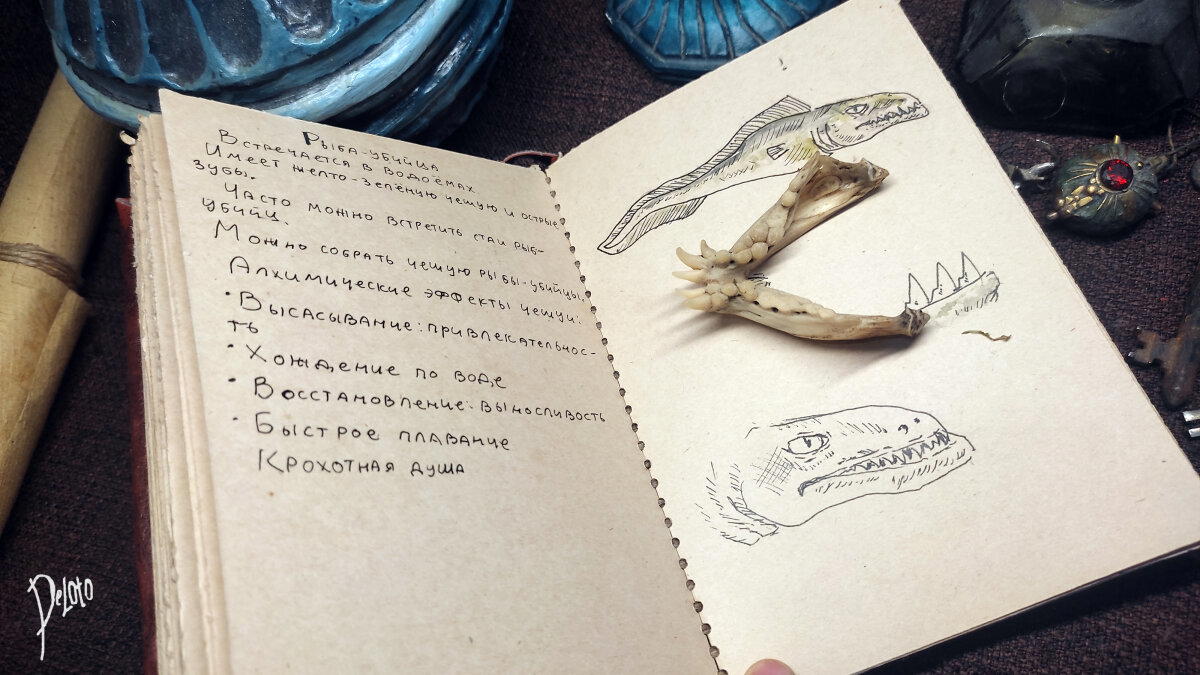 Рыба-убийца
Встречается в водоёмах
Имеет желто-зелёную чешую и острые
зубы.
Часто можно встретить стаи рыб-
убийц.
Можно собрать чешую рыбы-убийцы.
Алхимические эффекты чешуи:
• Высасывание: привлекательнос-
ть
• Хождение по воде
• Восстановление: выносливость
• Быстрое плавание
Крохотная душа
DeLoto